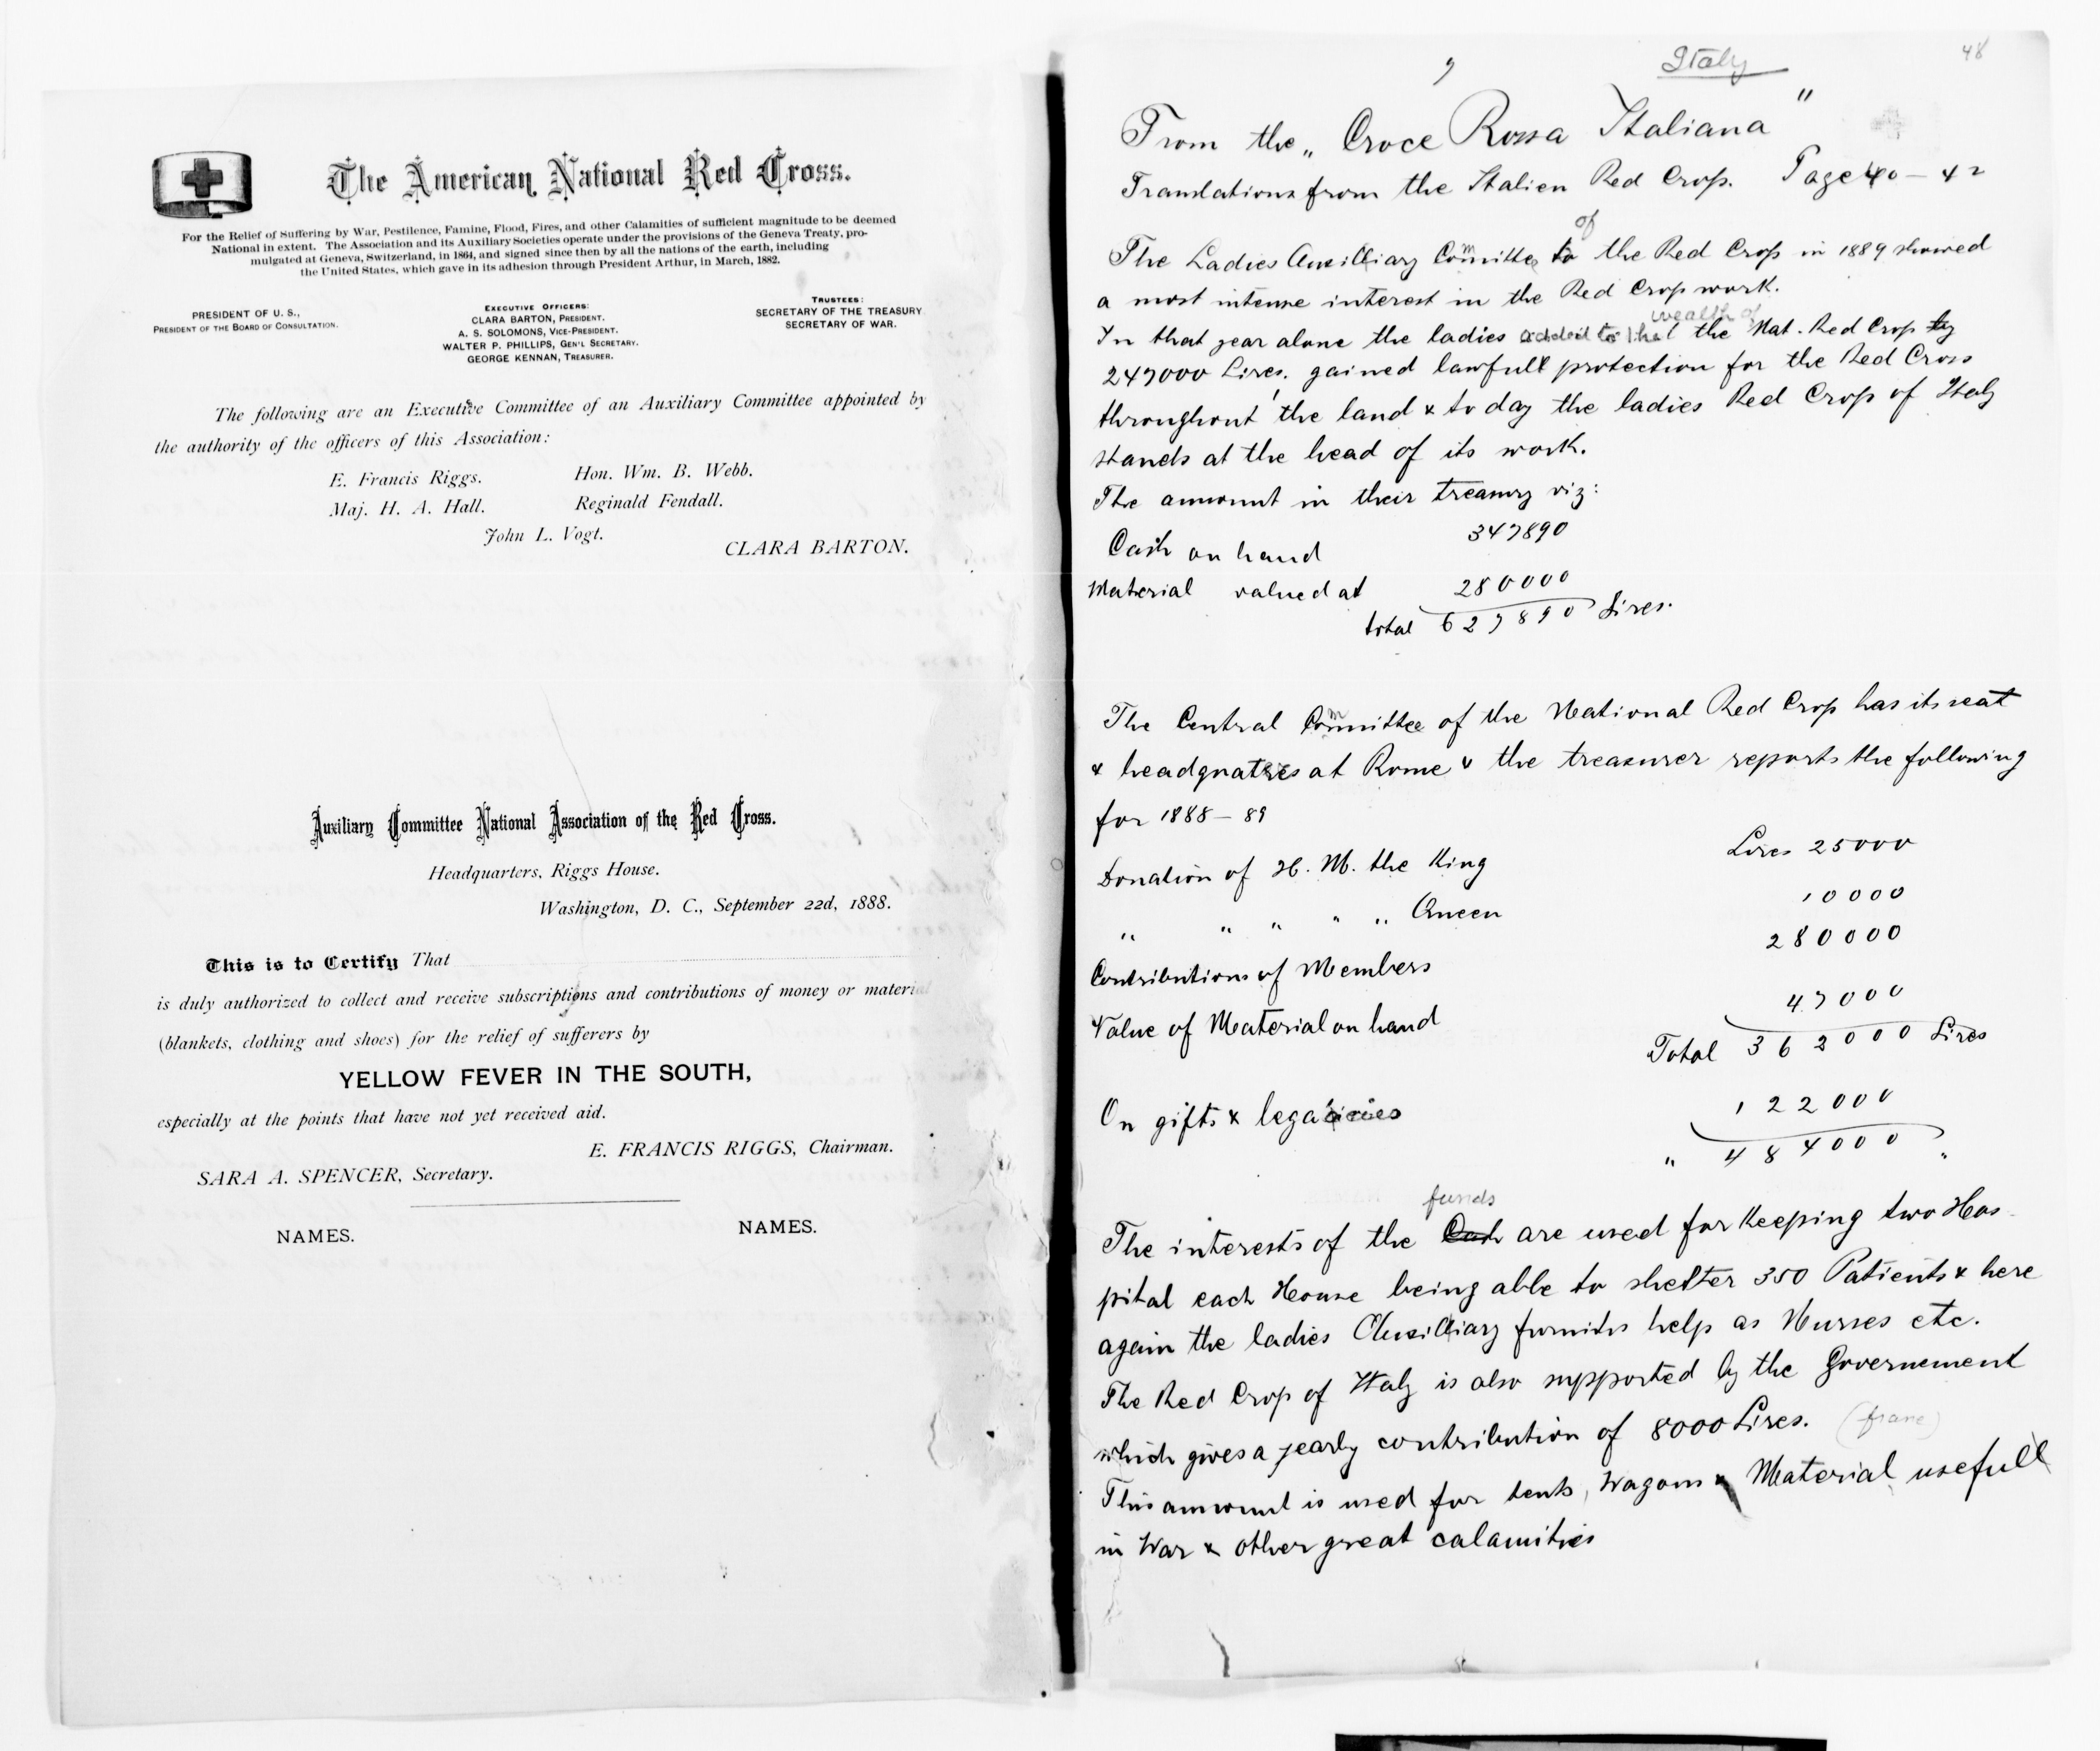 The American National Red Cross.
For the Relief of Suffering by War, Pestilence, Famine, Flood, Fires, and other Calamities of sufficient magnitude to be deemed
National in extent. The Association and its Auxiliary Societies operate under the provisions of the Geneva Treaty, pro-
mulgated at Geneva, Switzerland, in 1864, and signed since then by all the nations of the earth, including
the United States, which gave in its adhesion through President Arthur, in March, 1882.
PRESIDENT OF U. S.,
PRESIDENT OF THE BOARD OF CONSULTATION.
EXECUTIVE OFFICERS:
CLARA BARTON, PRESIDENT.
A. S. SOLOMONS, VICE-PRESIDENT.
WALTER P. PHILLIPS, GEN'L SECRETARY.
GEORGE KENNAN, TREASURER.
TRUSTEES:
SECRETARY OF THE TREASURY
SECRETARY OF WAR.
The following are an Executive Committee of an Auxiliary Committee appointed by
the authority of the officers of this Association:
E. Francis Riggs. Hon. Wm. B. Webb.
Maj. H. A. Hall. Reginald Fendall.
John L. Vogt.
CLARA BARTON.
Auxiliary Committee National Association of the Red Cross.
Headquarters, Riggs House.
Washington, D. C., September 22d, 1888.
This is to Certify That
is duly authorized to collect and receive subscriptions and contributions of money or material
(blankets, clothing and shoes) for the relief of sufferers by
YELLOW FEVER IN THE SOUTH,
especially at the points that have not yet received aid.
E. FRANCIS RIGGS, Chairman.
SARA A. SPENCER, Secretary.
NAMES. NAMES.
48
Italy
From the „Croce Rossa Italiana"
Translations from the Italien Red Cross. Page 40 – 42
of
The Ladies Auxilliary Committee to the Red Cross in 1889 showed
a most intense interest in the Red Cross work.
wealth of
In that year alone the ladies added to that the Nat. Red Cross by
247000 Lires. gained lawfull protection for the Red Cross
throughout the land & to day the ladies Red Cross of Italy
stands at the head of its work.
The amount in their treasury viz:
Cash on hand 347890
Material valued at 280000
total 627890 Lires.
The Central Committee of the National Red Cross has its seat
& headquatres at Rome & the treasurer reports the following
for 1888 – 89
Donation of H. M. the King Lires 25000
„ „ „ „ „ Queen 10000
Contributions of Members 280000
Value of Material on hand 47000
Total 362000 Lires
On gifts & legacies 122000
„ 484000 „
funds
The interests of the Cash are used for Keeping two Hos-
pital each House being able to shelter 350 Patients & here
again the ladies Auxilliary furnishs help as Nurses etc.
The Red Cross of Italy is also supported by the Governement
which gives a yearly contribution of 8000 Lires. (franc)
This amount is used for tents, Wagons & Material usefull
in War & other great calamities